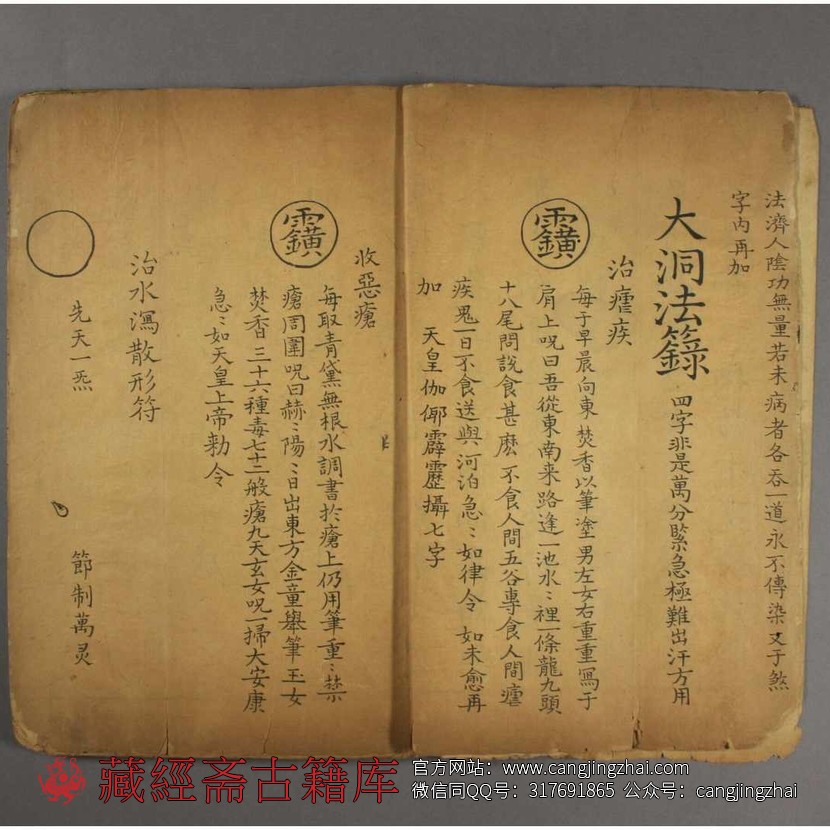 法濟人陰功無量若未病者各吞一道永不傳染又于煞
字内再加
大洞法籙 四字非是萬分緊急極難出汗方用
治瘧疾
每于早晨向東焚香以筆塗男左女右重重寫于
肩上呪曰吾從東南来路逢一池水〻裡一條龍九頭
十八尾問說食甚麽不食人間五谷專食人間瘧
疾鬼一日不食送與河泊急〻如律令 如未愈再
加 天皇伽㑘霹靂攝七字
收惡瘡
每取青黛無根水調書於瘡上仍用筆重〻禁
瘡周圍呪曰赫〻陽〻日出東方金童舉筆玉女
焚香三十六種毒七十二般瘡九天玄女呪一掃大安康
急〻如天皇上帝勅令
治水瀉散形符
先天一炁
節制萬灵
藏經斋古籍库
官方网站：www.cangjingzhai.com
微信同QQ号：317691865 公众号：cangjingzhai